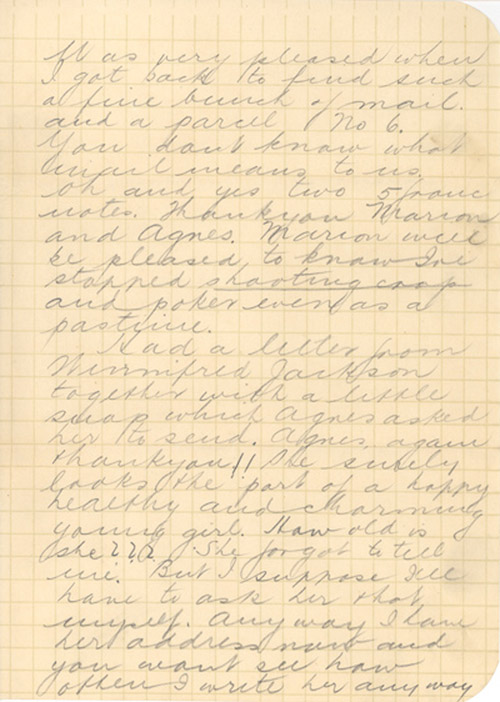 W as very pleased when
I got back to find such
a fine bunch of mail.
and a parcel No 6.
You dont know what
mail means to us.
oh and yes two 5 franc
notes. Thankyou Marion
and Agnes. Marion will
be pleased to know I've
stopped shooting crap
and poker even as a
pastime.
Had a letter from
Winnifred Jackson
together with a little
snap which Agnes asked
her to send. Agnes, again
thankyou!! She surely
looks the part of a happy
healthy and charming
young girl. How old is
she??? She forgot to tell
me. But I suppose I'll
have to ask her that
myself. Anyway I have
her address now and
you wont see how
often I write her anyway